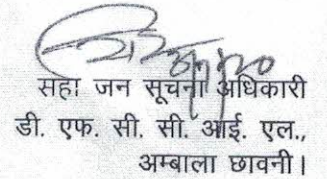 सहा जन सूचना अधिकारी
डी. एफ. सी. सी. आई. एल.,
अम्बाला छावनी।